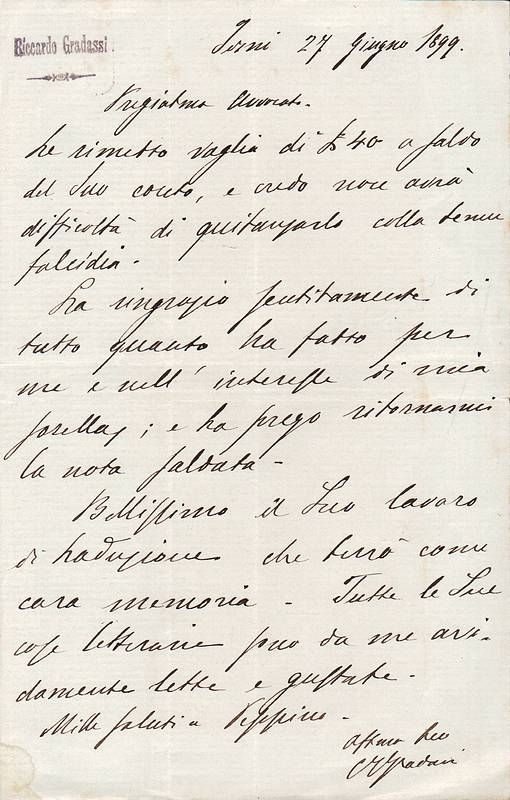 Riccardo Gradassi
Terni 27 Giugno 1899.
Pregiatmo Avvocato.
Le rimetto vaglia di £ 40 a saldo
del Suo conto, e credo non avrà
difficoltà di quitanzarlo colla tenue
falcidia.
La ringrazio sentitamente di
tutto quanto ha fatto per
me e nell' interesse di mia
sorella; e La prego ritornarmi
la nota saldata -
Bellissimo il Suo lavoro
di traduzione che terrò come
cara memoria - Tutte le Sue
cose letterarie sono da me avi-
damente lette e gustate.
Mille saluti a Peppino -
Affmo Suo
RGradassi